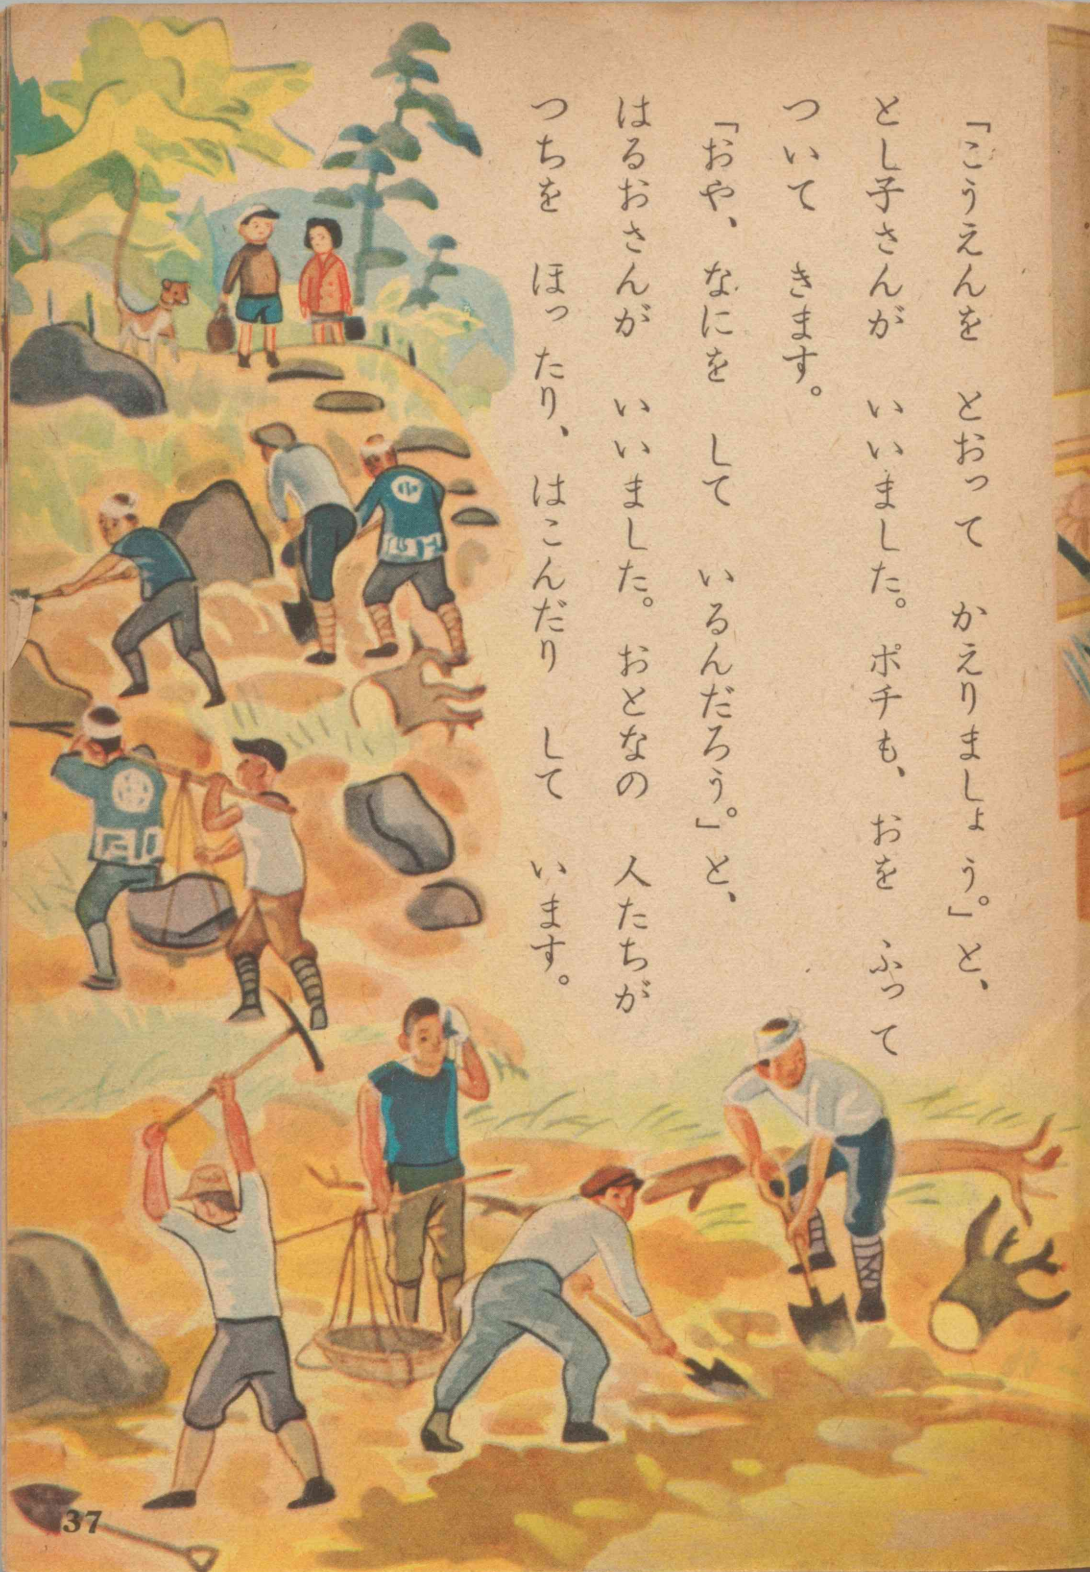 「こうえんを　とおって　かえりましょう。」と、
とし子さんが　いいました。ポチも、おを　ふって
ついて　きます。
「おや、なにを　して　いるんだろう。」と、
はるおさんが　いいました。おとなの　人たちが
つちを　ほったり、はこんだり　して　います。
37